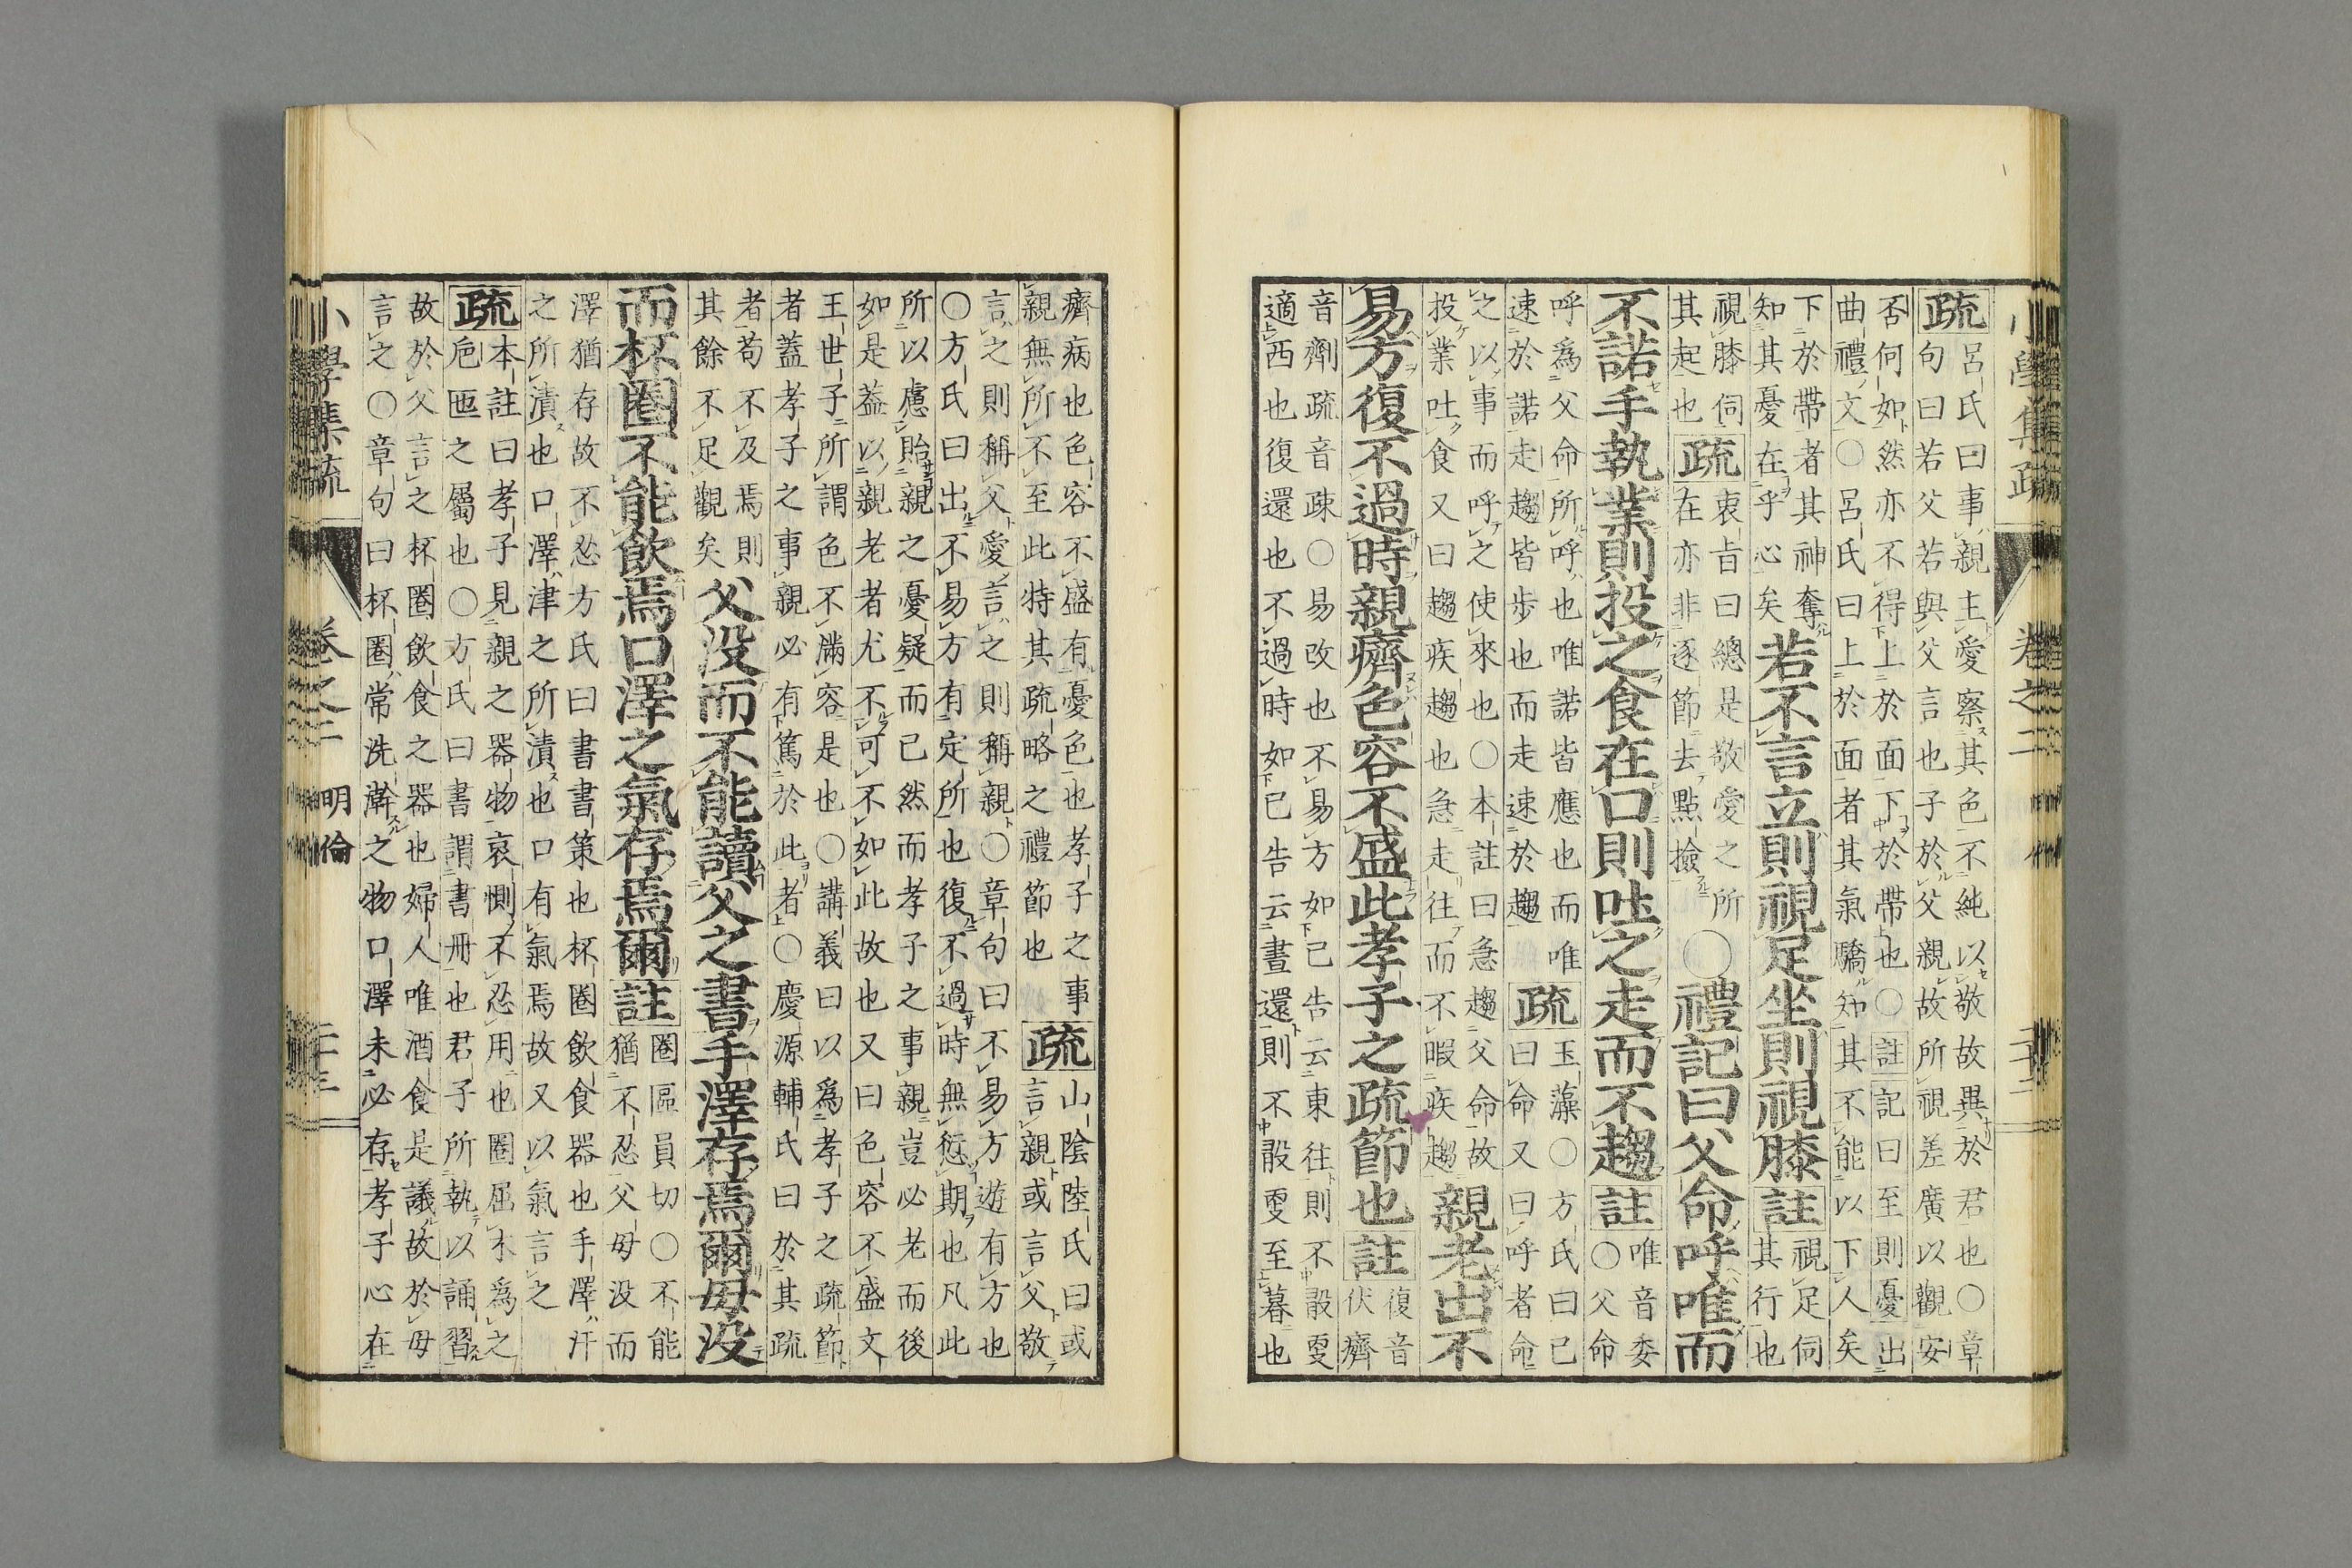 疏呂氏曰事親主愛察其色不純以敬故異於君也〇章
句曰若父若與父言也子於父親故所視差廣以觀安
否何如然亦不得上於面下於帶也〇註記曰至則憂出
曲禮文〇呂氏曰上於面者其氣驕知其不能以下人矣
下於帶者其神奪
知其憂在乎心矣
若不言立則視足坐則視膝註
視足伺
其行也
視膝伺
其起也
疏
衷旨曰總是敬愛之所
在亦非逐節去點撿
〇禮記曰父命呼唯而
不諾手執業則投之食在口則吐之走而不趨註
唯音委
〇父命
呼爲父命所呼也唯諾皆應也而唯
速於諾走趨皆步也而走速於趨
疏
玉藻〇方氏曰已
曰命又曰呼者命
之以事而呼之使來也〇本註曰急趨父命故
投業吐食又曰趨疾趨也急走往而不暇疾趨
親老出不
易方復不過時親癠色容不盛此孝子之疏節也註
復音
伏癠
音劑疏音疎〇易改也不易方如已告云東往則不敢更
適西也復還也不過時如已告云晝還則不敢更至暮也
癠病也色容不盛有憂色也孝子之事
親無所不至此特其疏略之禮節也
疏
山陰陸氏曰或
言親或言父敬
言之則稱父愛言之則稱親〇章句曰不易方遊有方也
〇方氏曰出不易方有定所也復不過時無愆期也凡此
所以慮貽親之憂疑而已然而孝子之事親豈必老而後
如是蓋以親老者尤不可不如此故也又曰色容不盛文
王世子所謂色不滿容是也〇講義曰以爲孝子之疏節
者蓋孝子之事親必有篤於此者〇慶源輔氏曰於其疏
者苟不及焉則
其餘不足觀矣
父没而不能讀父之書手澤存焉爾母没
而杯圈不能飲焉口澤之氣存焉爾註
圈區員切〇不能
猶不忍父母没而
澤猶存故不忍方氏曰書書策也杯圈飲食器也手澤汗
之所漬也口澤津之所漬也口有氣焉故又以氣言之
疏本註曰孝子見親之器物哀惻不忍用也圈屈木爲之
巵匜之屬也〇方氏曰書謂書冊也君子所執以誦習
故於父言之杯圈飲食之器也婦人唯酒食是議故於母
言之〇章句曰杯圈常洗澣之物口澤未必存孝子心在
小學集疏
卷之二
明倫
二十三